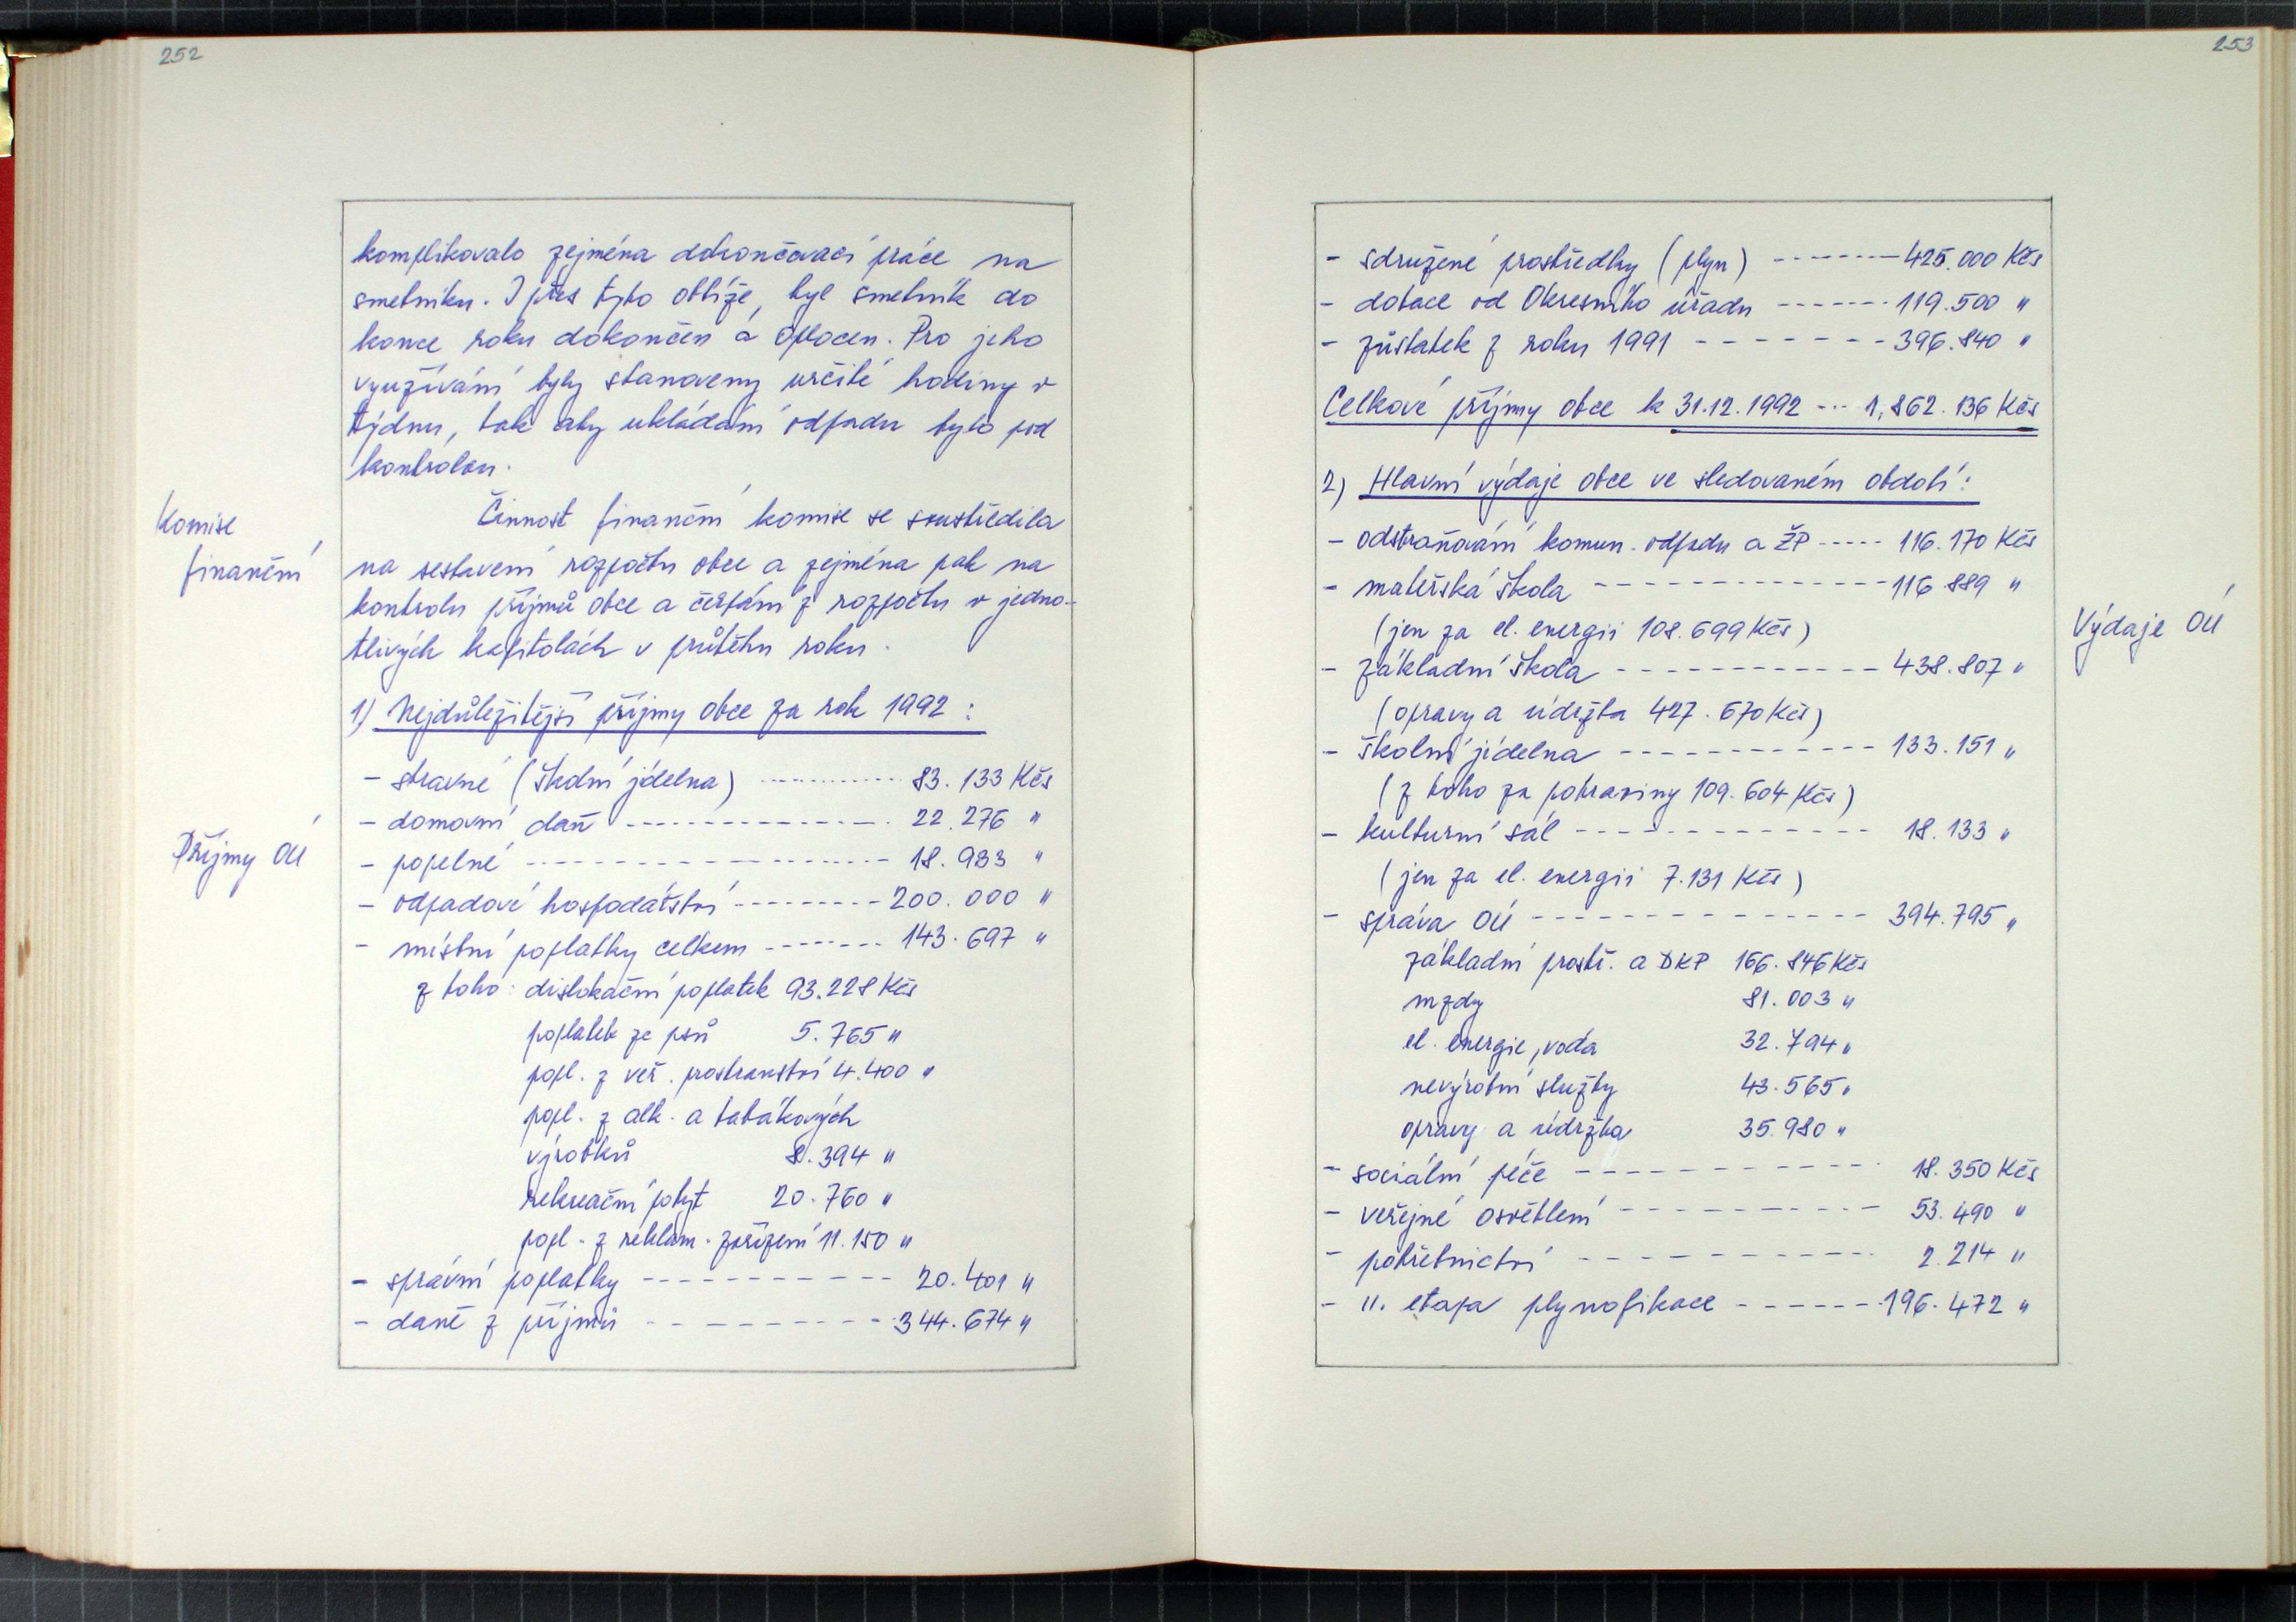 252
komplikovalo zejména dokončovací práce na
smetníku. I přes tyto obtíže, byl smetník do
konce roku dokončen a oplocen. Pro jeho
využívání byly stanoveny určité hodiny v
týdnu, tak aby ukládání odpadu bylo pod
kontrolou.
Komise
finanční
Činnost finanční komise se soustředila
na sestavení rozpočtu obce a zejména pak na
kontrolu příjmů obce a čerpání z rozpočtu v jedno-
tlivých kapitolách v průběhu roku.
1) Nejdůležitější příjmy obce za rok 1992 :
Příjmy OÚ
- stravné (školní jídelna) ---------- 83.133 Kčs
- domovní daň -------------- 22.276 "
- popelné ------------------ 18.933 "
- odpadové hospodářství --------- 200.000 "
- místní poplatky celkem -------- 143.697 "
z toho: dislokační poplatek 93.228 Kčs
poplatek ze psů 5.765 "
popl. z veř. prostranství 4.400 "
popl. z alk. a tabákových
výrobků 8.394 "
rekreační pobyt 20.760 "
popl. z reklam. zařízení 11.150 "
- správní poplatky ----------- 20.401 "
- daně z příjmů ---------- 344.674 "
253
- sdružené prostředky (plyn) -------- 425.000 Kčs
- dotace od Okresního úřadu ------- 119.500 "
- zůstatek z roku 1991 -------- 396.840 "
Celkové příjmy obce k 31.12.1992 --- 1,862.136 Kčs
2) Hlavní výdaje obce ve sledovaném období :
Výdaje OÚ
- odstraňování komun. odpadu a ŽP ----- 116.170 Kčs
- mateřská škola -------------- 116.889 "
(jen za el. energii 108.699 Kčs)
- základní škola ------------ 438.807 "
(opravy a údržba 427.670 Kčs)
- školní jídelna ------------ 133.151 "
(z toho za potraviny 109.604 Kčs)
- kulturní sál ------------- 18.133 "
(jen za el. energii 7.131 Kčs)
- správa OÚ -------------- 394.795 "
základní prostř. a DKP 166.846 Kčs
mzdy 81.003 "
el. energie, voda 32.794 "
nevýrobní služby 43.565 "
opravy a údržba 35.980 "
- sociální péče ------------ 18.350 Kčs
- veřejné osvětlení ---------- 53.490 "
- pohřebnictví ------------ 2.214 "
- II. etapa plynofikace ------ 196.472 "